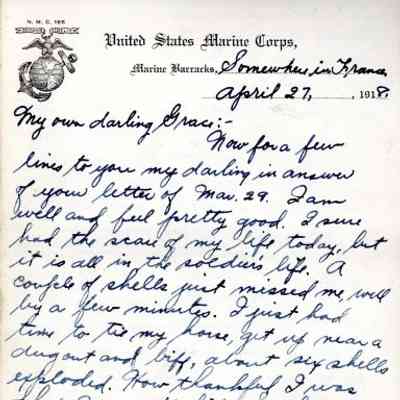 N. M. C. 166
United States Marine Corps,
Marine Barracks, Somewhere in France
April 27, , 1918.
My own darling Grace:-
Now for a few
lines to you my darling in answer
of your letter of Mar. 29. I am
well and feel pretty good. I sure
had the scare of my life today, but
it is all in the soldier's life. A
couple of shells just missed me, well
by a few minutes. I just had
time to tie my horse, get up near a
dugout and biff, about six shells
exploded. How thankful I was